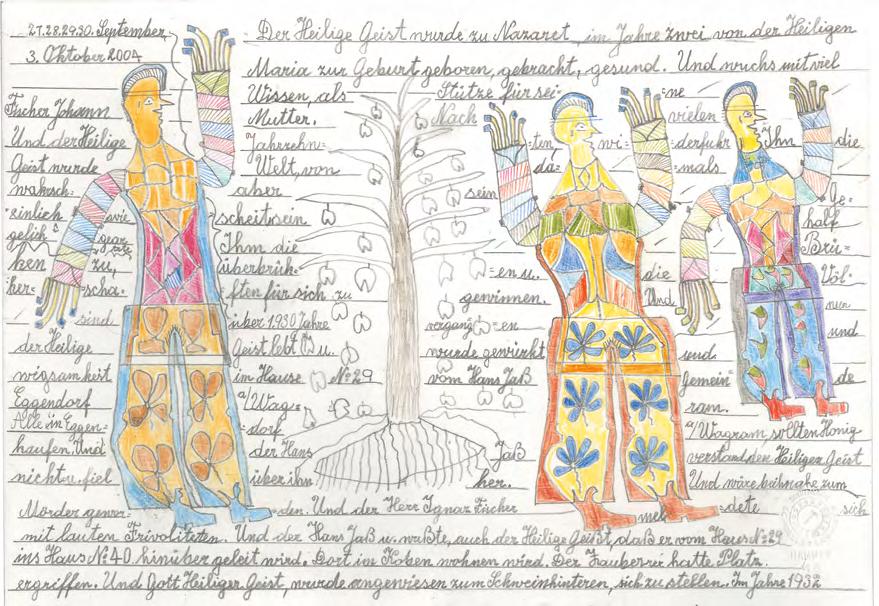 27.28.29.30. September, Der Heilige Geist wurde zu Nazaret, im Jahre zwei von der Heiligen
3. Oktober 2004 Maria zur Geburt geboren, gebracht, gesund. Und wuchs mit viel
Wissen, als Stütze für sei- ne
Fischer Johann Mutter. Nach vielen
Und der Heilige Jahrzehn- =ten, wi= derfuhr Ihm die
Geist wurde Welt, von da= mals
wahrsch= aber sein Ge=
einlich wie scheitsein half
gelich Ihm die Brü=
ken zu, überbrük- =en u. die Völ=
her= scha. ften für sich zu gewinnen. Und nen
sind über 1.930 Jahre vergang =en und
der Heilige Geist lebt u. wurde gewirkt und
wirgsamkeit im Hause No 29 vom Hans Jaß gemein de
Eggendorf a/Wag= ram.
Alle in Eggen= dorf a/Wagram sollten Honig
haufen. Und der Hans Jaß verstand der Heiliger Geist
nicht u. fiel über ihn her. Und wäre beihnahe zum
Mörder gewor= =den. Und der Herr Ignaz Fischer mel= =dete sich
mit lauten Frivolitäten. Und der Hans Jaß u. wußte, auch der Heilige Geißt, daß er vom Haus No 29
ins Haus No 40. hinüber geleit wird. Dort im Koben wohnen wird. Der Zauberei hatte Platz
ergriffen. Und Gott Heiliger Geist, wurde angewiesen zum Schweinhinteren, sich zu stellen. Im Jahre 1932